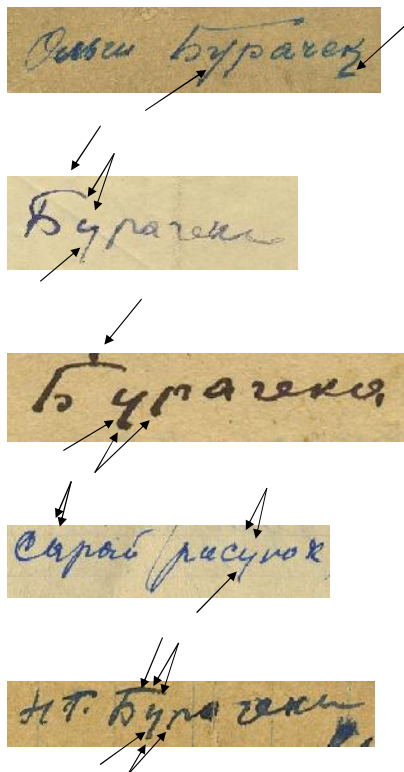 Ольги Бурачек
Бурачек
Бурачека
Сарай рисунок
НГ. Бурачек